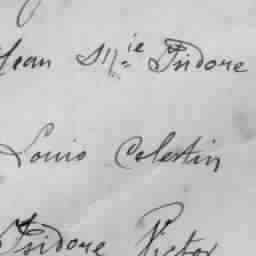 Jean M.ie Isidore
Louis Celestin
Isidore Victor